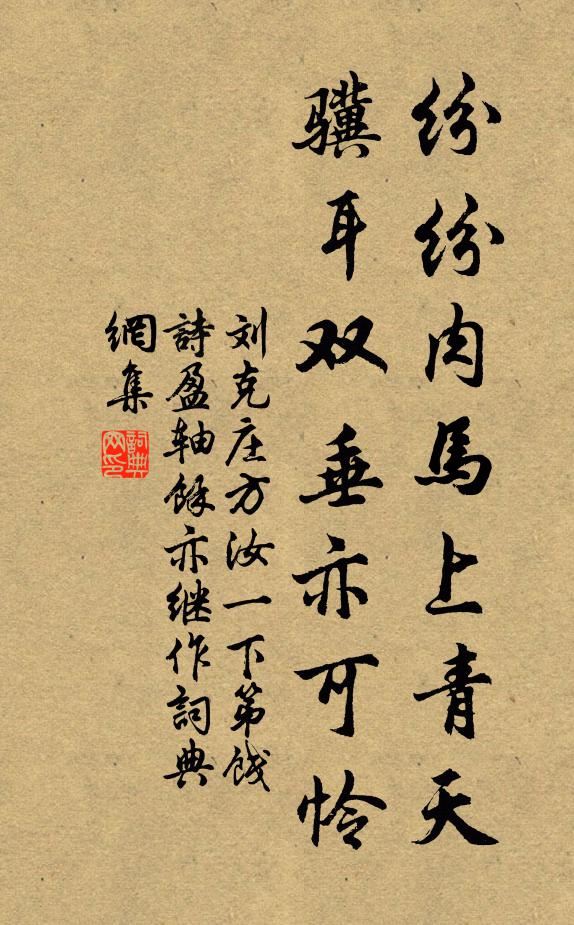 纷纷肉馬上青天
骥耳双垂亦可怜
刘克庄方汝一下第饯
詩盈轴餘亦继作詞典
網集
詞典网印